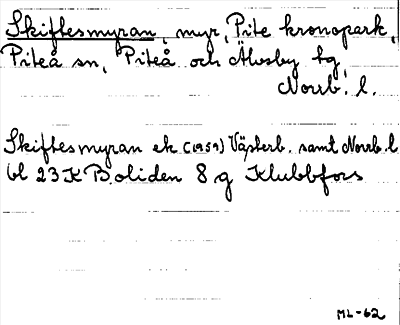 Skiftesmyran, myr, Pite kronopark,
Piteå sn, Piteå och Älvsby tg,
Norrb. l.
Skiftesmyran ek (1959) Västerb. samt Norrb. l
bl 23K Boliden 8 g Klubbfors
ML-62